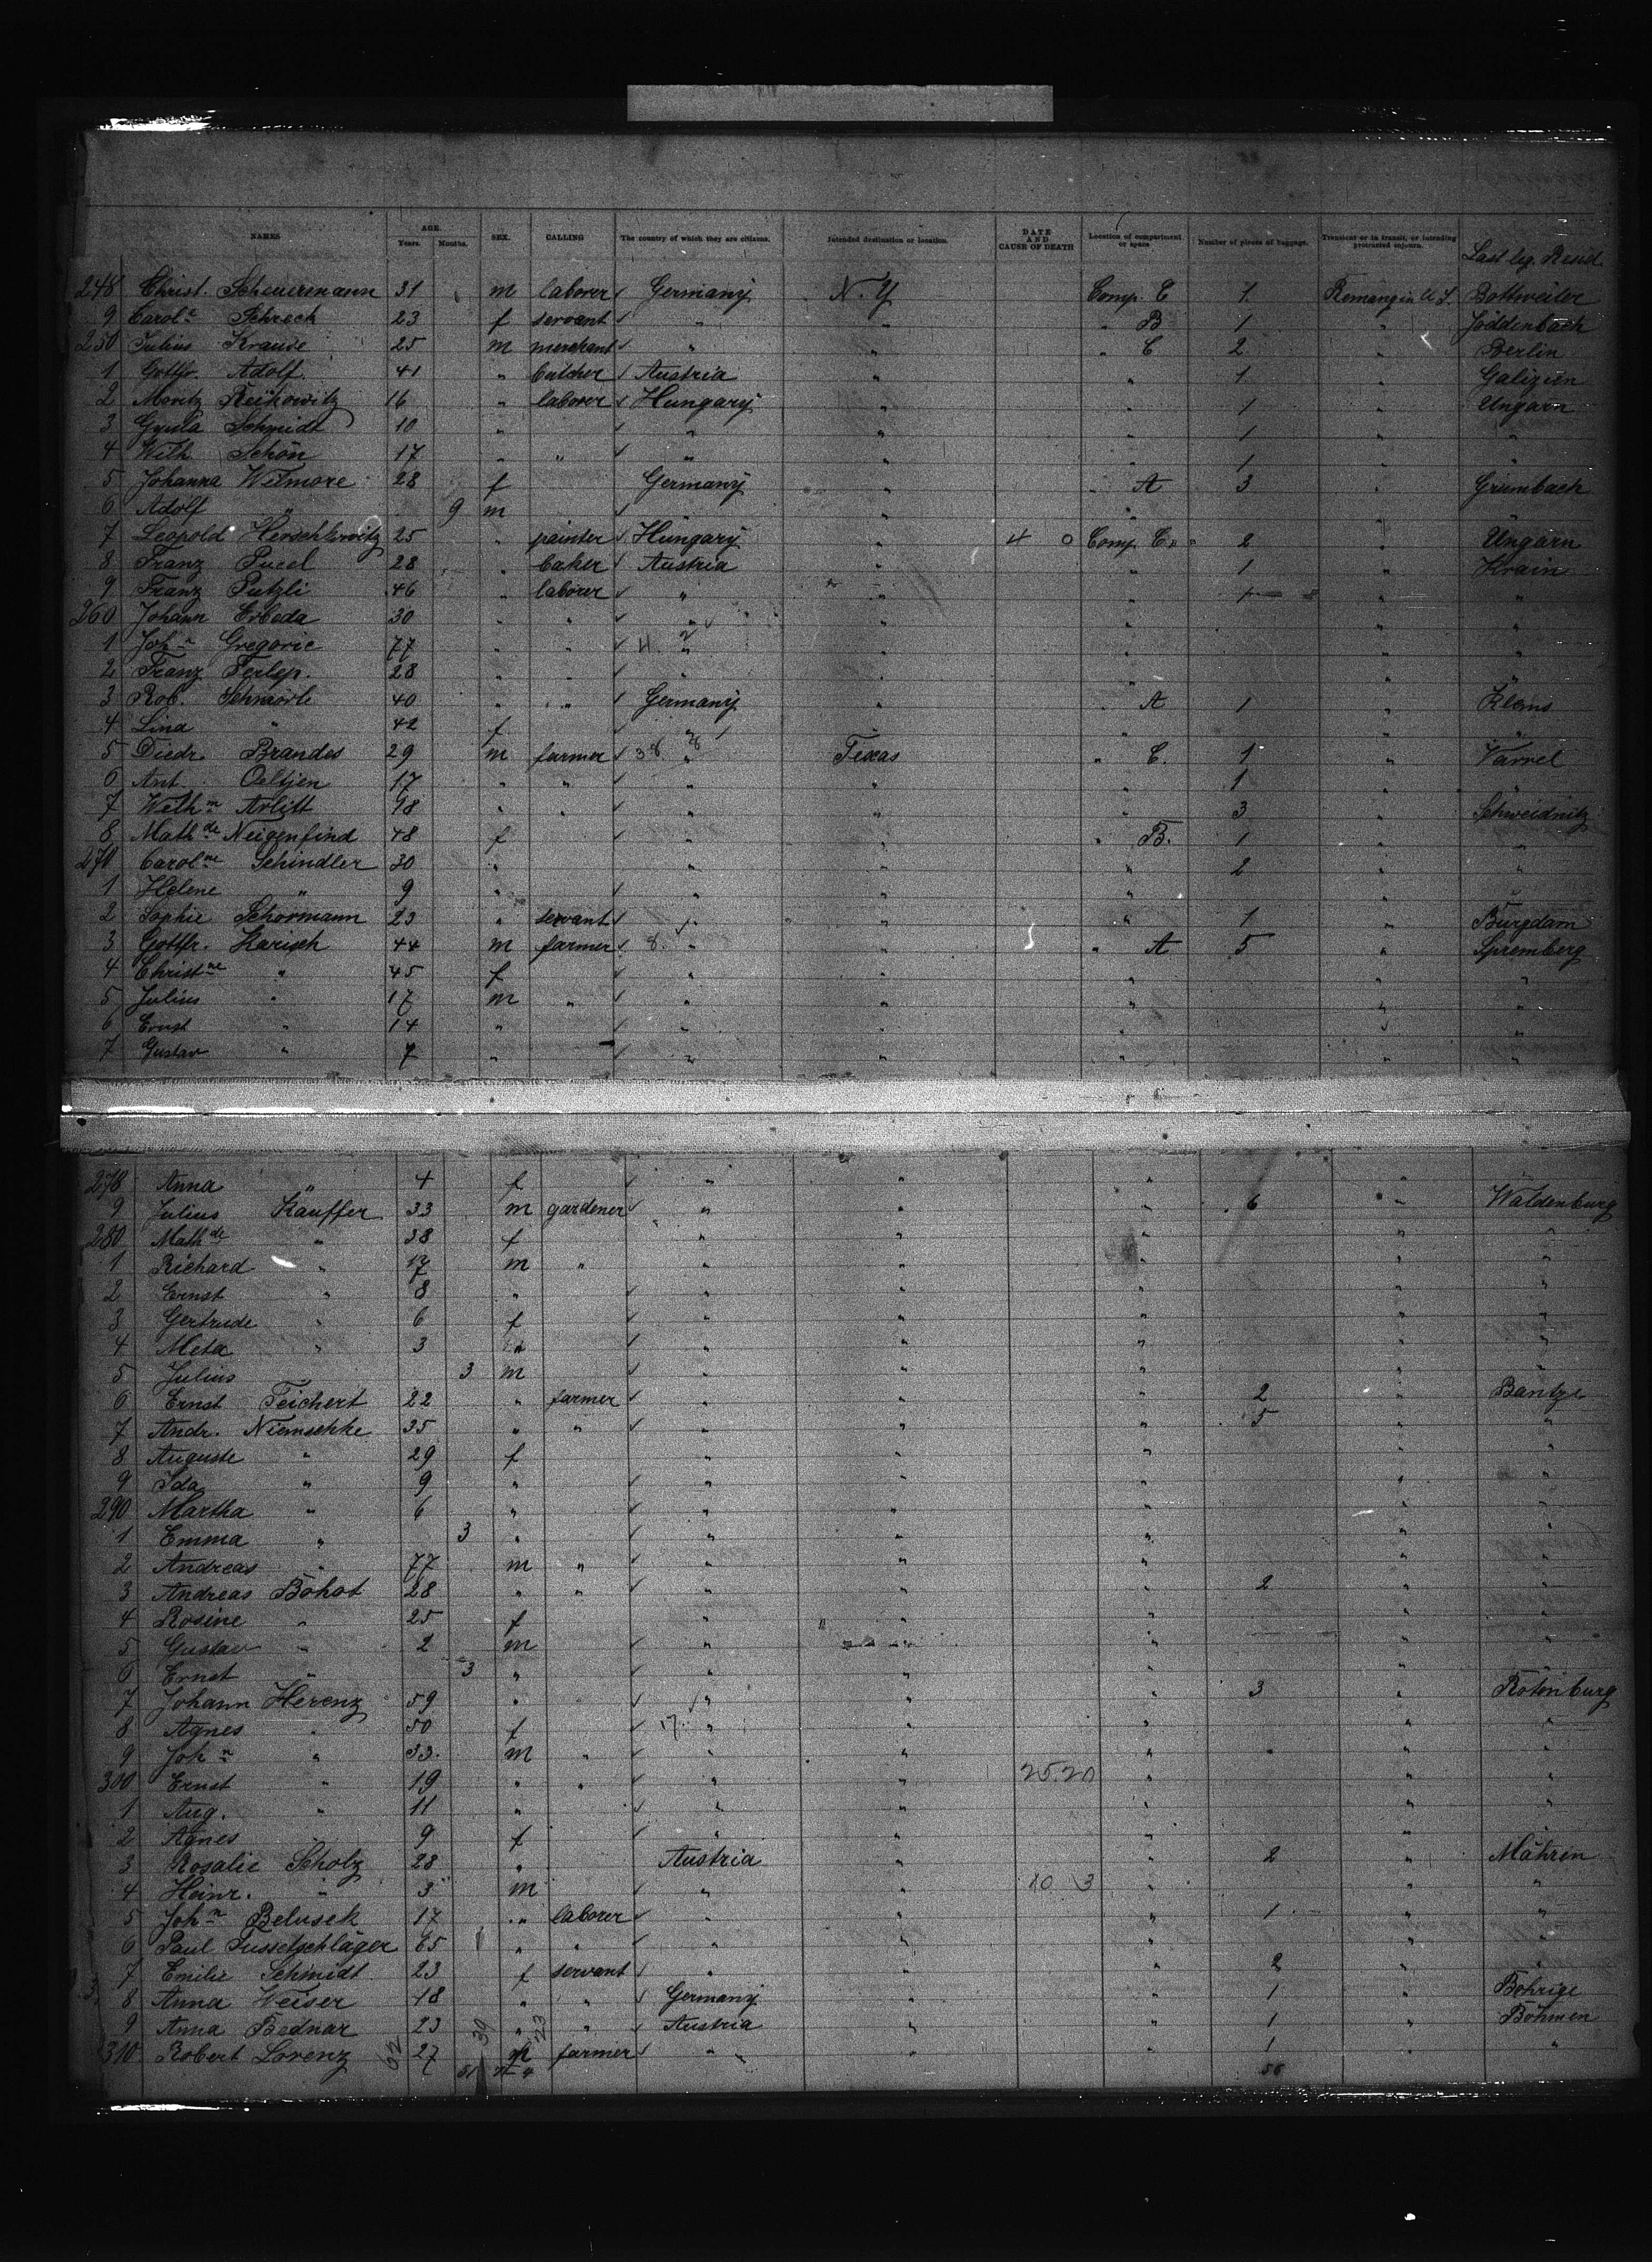 NAMES AGE. Years. Months. SEX. CALLING The country of which they are citizens. Intended destination or location. DATE AND CAUSE OF DEATH Location of compartment or space Number of pieces of baggage. Transient or in transit, or intending protracted sojourn. Last leg. Resid.
248 Christ. Scheuermann 31 m laborer Germany N.Y Comp. C 1 Remang in U.S. Bottweiler
9 Carol e Schreck 23 f servant " " " B 1 " Jöddenbach
250 Julius Krause 25 m merchant " " " C 2 " Berlin
1 Gottfr. Adolf 41 " butcher Austria " " 1 " Galizien
2 Moritz Reikowitz 16 " laborer Hungary " " 1 " Ungarn
3 Gyula Schmidt 10 " " " " 1 " "
4 Wilh Schön 17 " " " " " 1 " "
5 Johanna Wetmore 28 f Germany " " A 3 " Grumbach
6 Adolf " 9 m " " " " "
7 Leopold Herschkowitz 25 " painter Hungary " 4 0 Comp. C " 2 " Ungarn
8 Franz Pucel 28 " baker Austria " " 1 " Krain
9 Franz Putzli 46 " laborer " " " 1 " "
260 Johann Erbeda 30 " " " " " " "
1 Joh n Gregoric 77 " " " " " " "
2 Franz Ferlep. 28 " " " " " " "
3 Rob. Schmörle 40 " " Germany " " A 1 " Klems
4 Lina " 42 f " " " " "
5 Diedr. Brandes 29 m farmer 38 " 8 Texas " C. 1 " Varrel
6 Ant. Oeltjen 17 " " " " " 1 " "
7 Wilh m Arlitt 48 " " " " " 3 " Schweidnitz
8 Math de Neigenfind 48 f " " " B. 1 " "
270 Carol ne Schindler 30 " " " " 2 " "
1 Helene " 9 " " " " " "
2 Sophie Schörmann 23 " servant " " " 1 " Burgdam
3 Gottfr. Karisch 44 m farmer 8. " " " A 5 " Spremberg
4 Christ ne " 45 f " " " " "
5 Julius " 17 m " " " " " "
6 Ernst " 14 " " " " " "
7 Gustav " 7 " " " " " "
278 Anna " 4 f " " " "
9 Julius Käuffer 33 m gardener " " " 6 " Waldenburg
280 Math de " 38 f " " " " "
1 Richard " 17 m " " " " " "
2 Ernst " 8 " " " " " "
3 Gertrude " 6 f " " " " "
4 Meta " 3 " " " " " "
5 Julius " 3 m " " " " "
6 Ernst Teichert 22 " farmer " " " 2 " Bantze
7 Andr. Niemschke 35 " " " " " 5 " "
8 Auguste " 29 f " " " " "
9 Ida " 9 " " " " " "
290 Martha " 6 " " " " " "
1 Emma " 3 " " " " " "
2 Andreas " 77 m " " " " " "
3 Andreas Böhot 28 " " " " " 2 " "
4 Rosine " 25 f " " " " "
5 Gustav " 2 m " " " " "
6 Ernst " 3 " " " " " "
7 Johann Herenz 59 " " " " 3 " Rotenburg
8 Agnes " 50 f 17. " " " " "
9 Joh n " 33. m " " " " " "
300 Ernst " 19 " " " " 25.20 " " "
1 Aug. " 11 " " " " " "
2 Agnes " 9 f " " " " "
3 Rosalie Scholz 28 " Austria " " 2 " Mähren
4 Heinr. " 3 m " " 10 3 " " "
5 Joh n Belusek 17 " laborer " " " 1 " "
6 Paul Fussetschläger 65 " " " " " " "
7 Emilie Schmidt 23 f servant " " " 2 " "
8 Anna Weiser 18 " " Germany " " 1 " Bohrige
9 Anna Bednar 23 " " Austria " " 1 " Böhmen
310 Robert Lorenz 27 m farmer " " " 1 " "
62 39 23
56